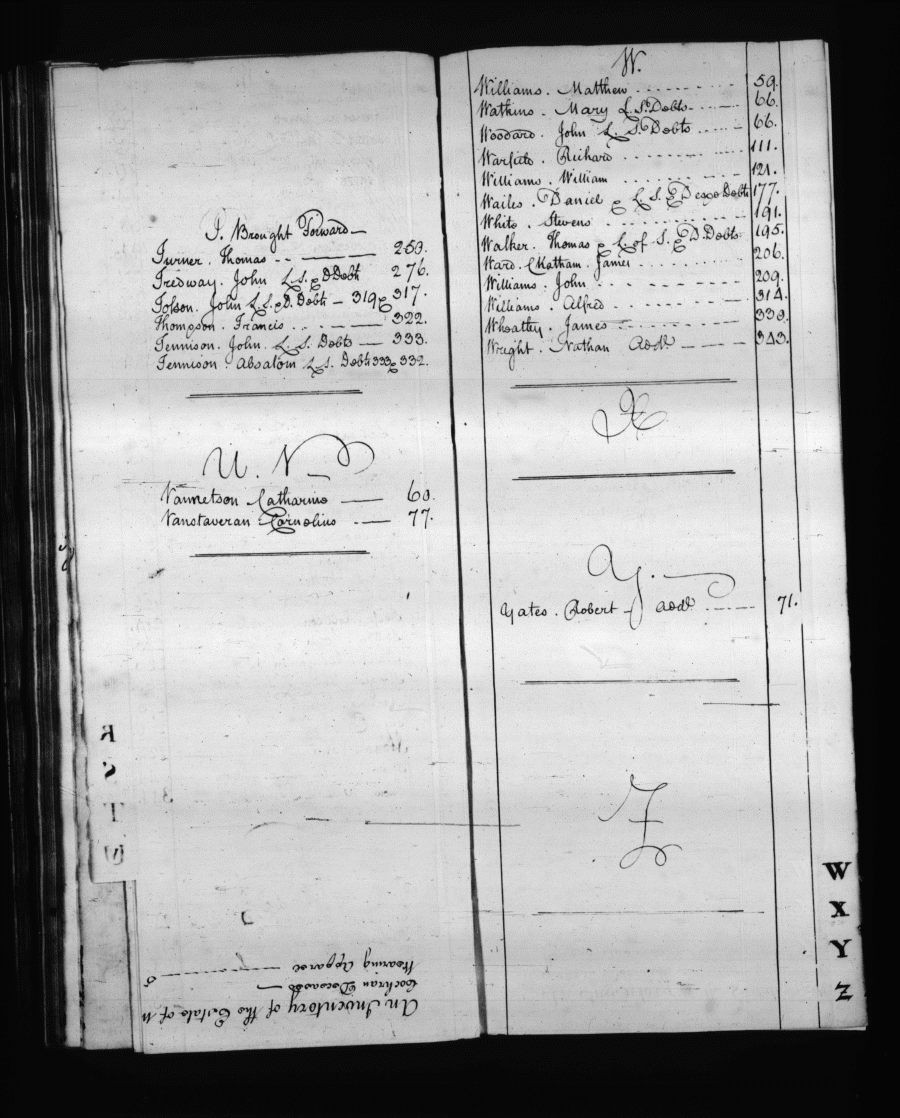 T. Brought Forward
Turner. Thomas 250.
Tredway. John L. S. & D Debts 276.
Tolson. John L. S. & D. Debts 319 & 317.
Thompson. Francis 322.
Tennison. John. L. S. Debts 333.
Tennison. Absalom L. S. Debts 333 & 332.
U. V
Vannetson Catharine 60.
Vanstaveran Cornelius 77.
R
S
T
An Inventory of the Estate of
Cochran Deceased
Wearing Apparel
W.
Williams. Matthew 59.
Watkins. Mary L. S. Debts 66.
Woodard. John L. S. Debts 66.
Warfield. Richard 111.
Williams. William 121.
Wailes. Daniel & L. S. & Debts 177.
White. Stevens 191.
Walker. Thomas & L. of S. & D. Debts 195.
Ward. Chatham. James 206.
Williams. John 209.
Williams. Alfred 314.
Wheatley. James 330.
Wright. Nathan Addl 343.
X
Y.
Yates. Robert Addl 71.
Z
W
X
Y
Z